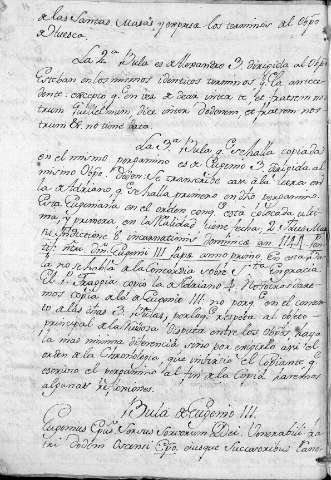 de las Santas Masas, y expresa los terminos del Obpo
de Huesca.
La 2.ª Bula es de Alexandro 3. dirigida al Obpo
Esteban en los mismos identicos terminos q la antece
dente: excepto q en vez de decir inter te, et fratrem nos
trum Guillelmum, dice inter Dodonem, et fratrem nos
trum &c. no tiene data.
La 3.ª Bula q se halla copiada
en el mismo pergamino es de Eugenio 3. dirigida al
mismo Obpo Dodon. Se transcribe casi a la letra en
la de Adriano q se halla primera en dho pergamino.
Esta Eugeniana en el orden conq. esta colocada ulti
ma, y primera en la realidad tiene fecha, 2
Indictione incarnationis dominice an 1144 Ponti
fi. dñi Eugenii III Papæ anno primo. En esta Bula
no se habla de la Concordia sobre S.ta Engracia
El P. copia la de Adriano 4. Nosotros dare
mos copia de la de Eugenio III. no porq. en el contex
to de las dhas 3. Bulas, por lo q. respeta al objeto
principal de la ruidosa Disputa entre los Obpos, haya
la mas minima diferencia, sino por exigirlo asi el
orden de la Chronologia, que invirtió el Copiante q
escrivio el pergamino al fin de la Copia haremos
algunas reflexiones.
Bula de Eugenio III.
Eugenius Epus Servus Servorum Dei. Venerabili fra
tri Dodoni Oscensi Epo, eiusque Succesoribus Cano